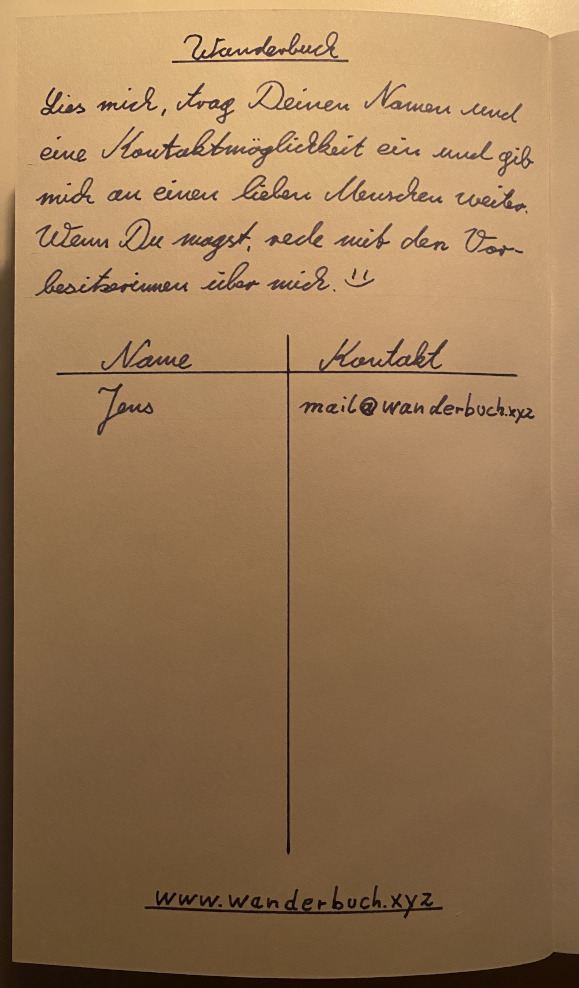 Wanderbuch
Lies mich, trag Deinen Namen und
eine Kontaktmöglichkeit ein und gib
mich an einen lieben Menschen weiter.
Wenn Du magst, rede mit den Vor-
besitzerinnen über mich. :)
Name Kontakt
Jens mail@wanderbuch.xyz
www.wanderbuch.xyz